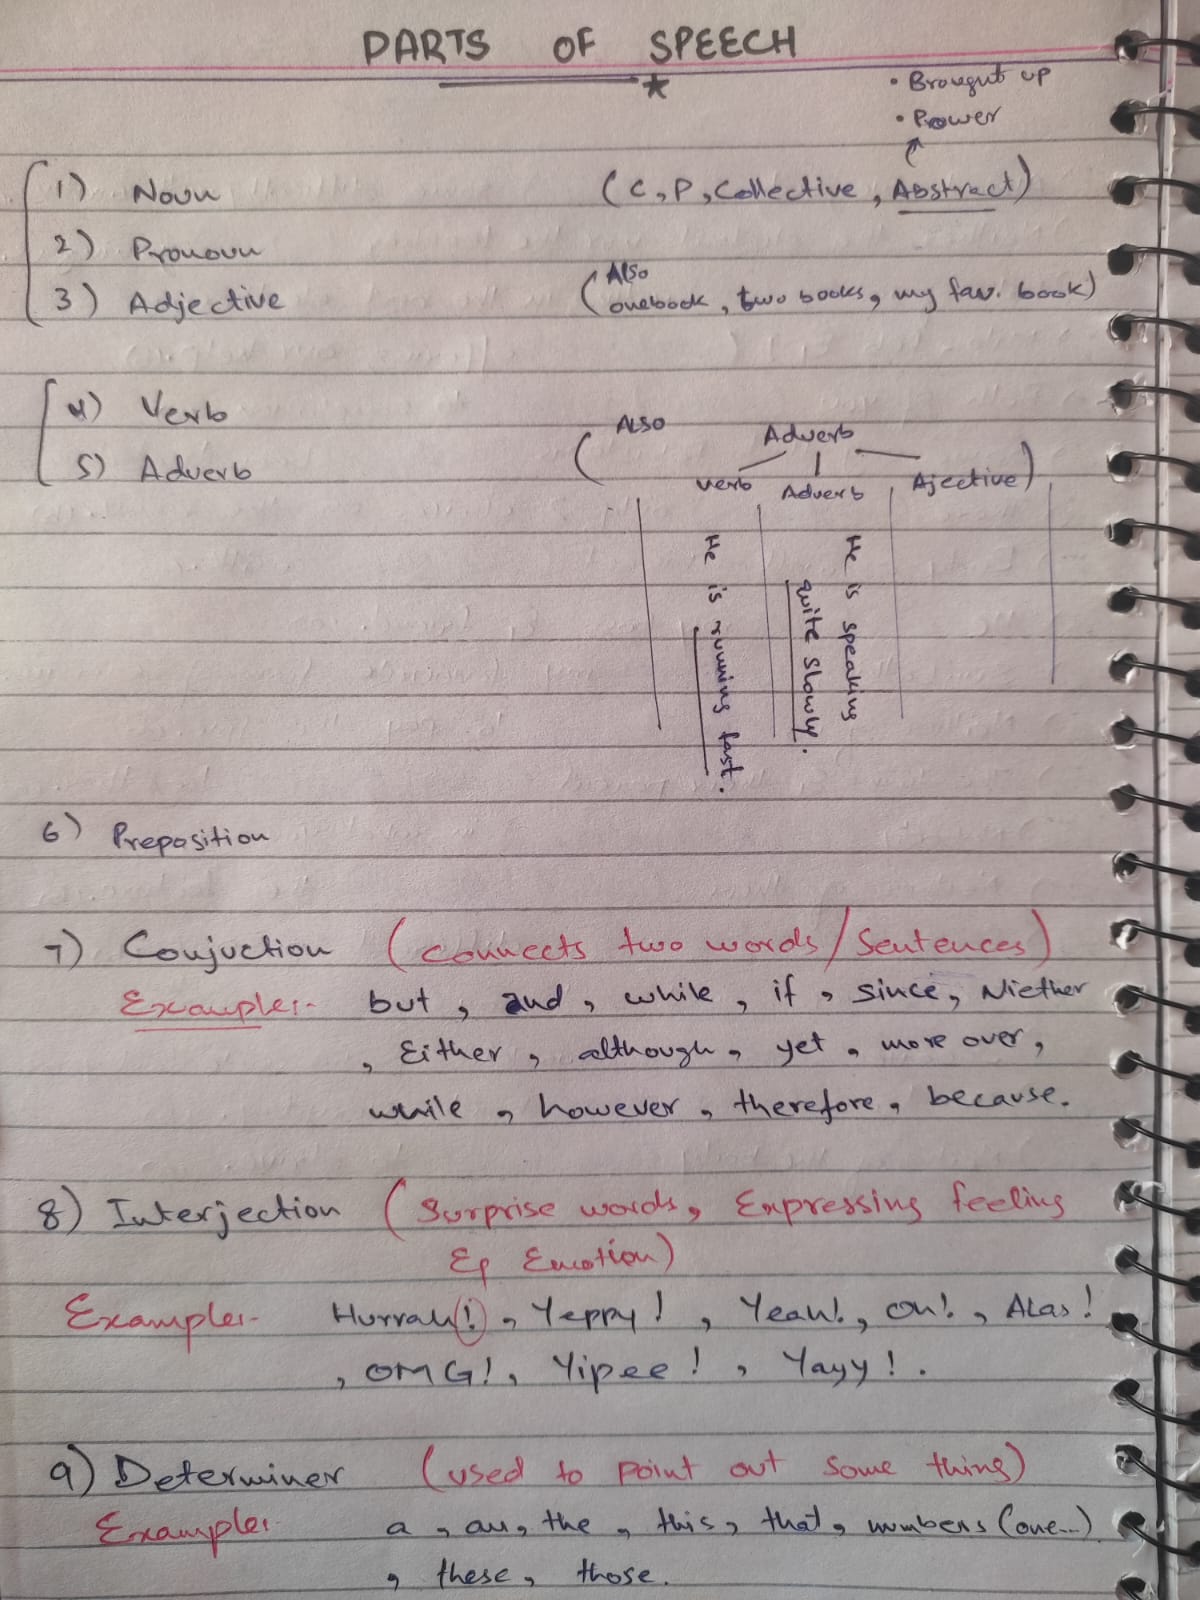 PARTS OF SPEECH
• Brought up
• Power
1) Noun (C, P, Collective, Abstract)
2) Pronoun
3) Adjective (Also onebook, two books, my fav. book)
4) Verb
5) Adverb
(ALSO Adverb
verb Adverb Ajective)
He is running fast.
He is speaking
quite slowly.
6) Preposition
7) Conjuction (connects two words/Sentences)
Example:- but, and, while, if, since, Niether
, Either, although, yet, more over,
while, however, therefore, because.
8) Interjection (Surprise words, Expressing feeling
& Emotion)
Example:- Hurrah!, Yeppy!, Yeah!, oh!, Alas!
, OMG!, Yipee!, Yayy!.
9) Determiner (used to point out some thing)
Example:- a, an, the, this, that, numbers (one...)
, these, those.